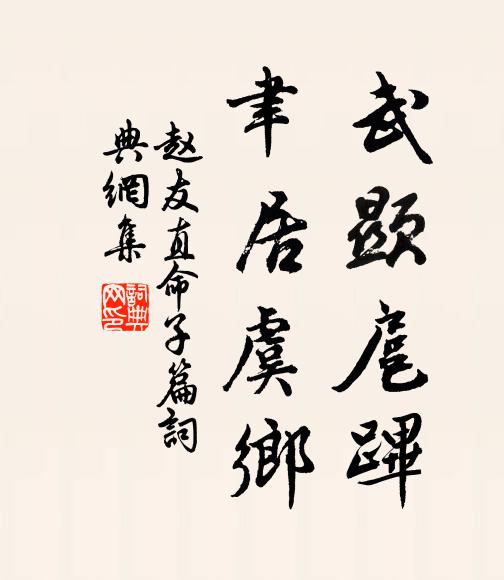 武顯扈蹕
聿居虞鄉
赵友直命子篇詞
典網集
詞典
网印